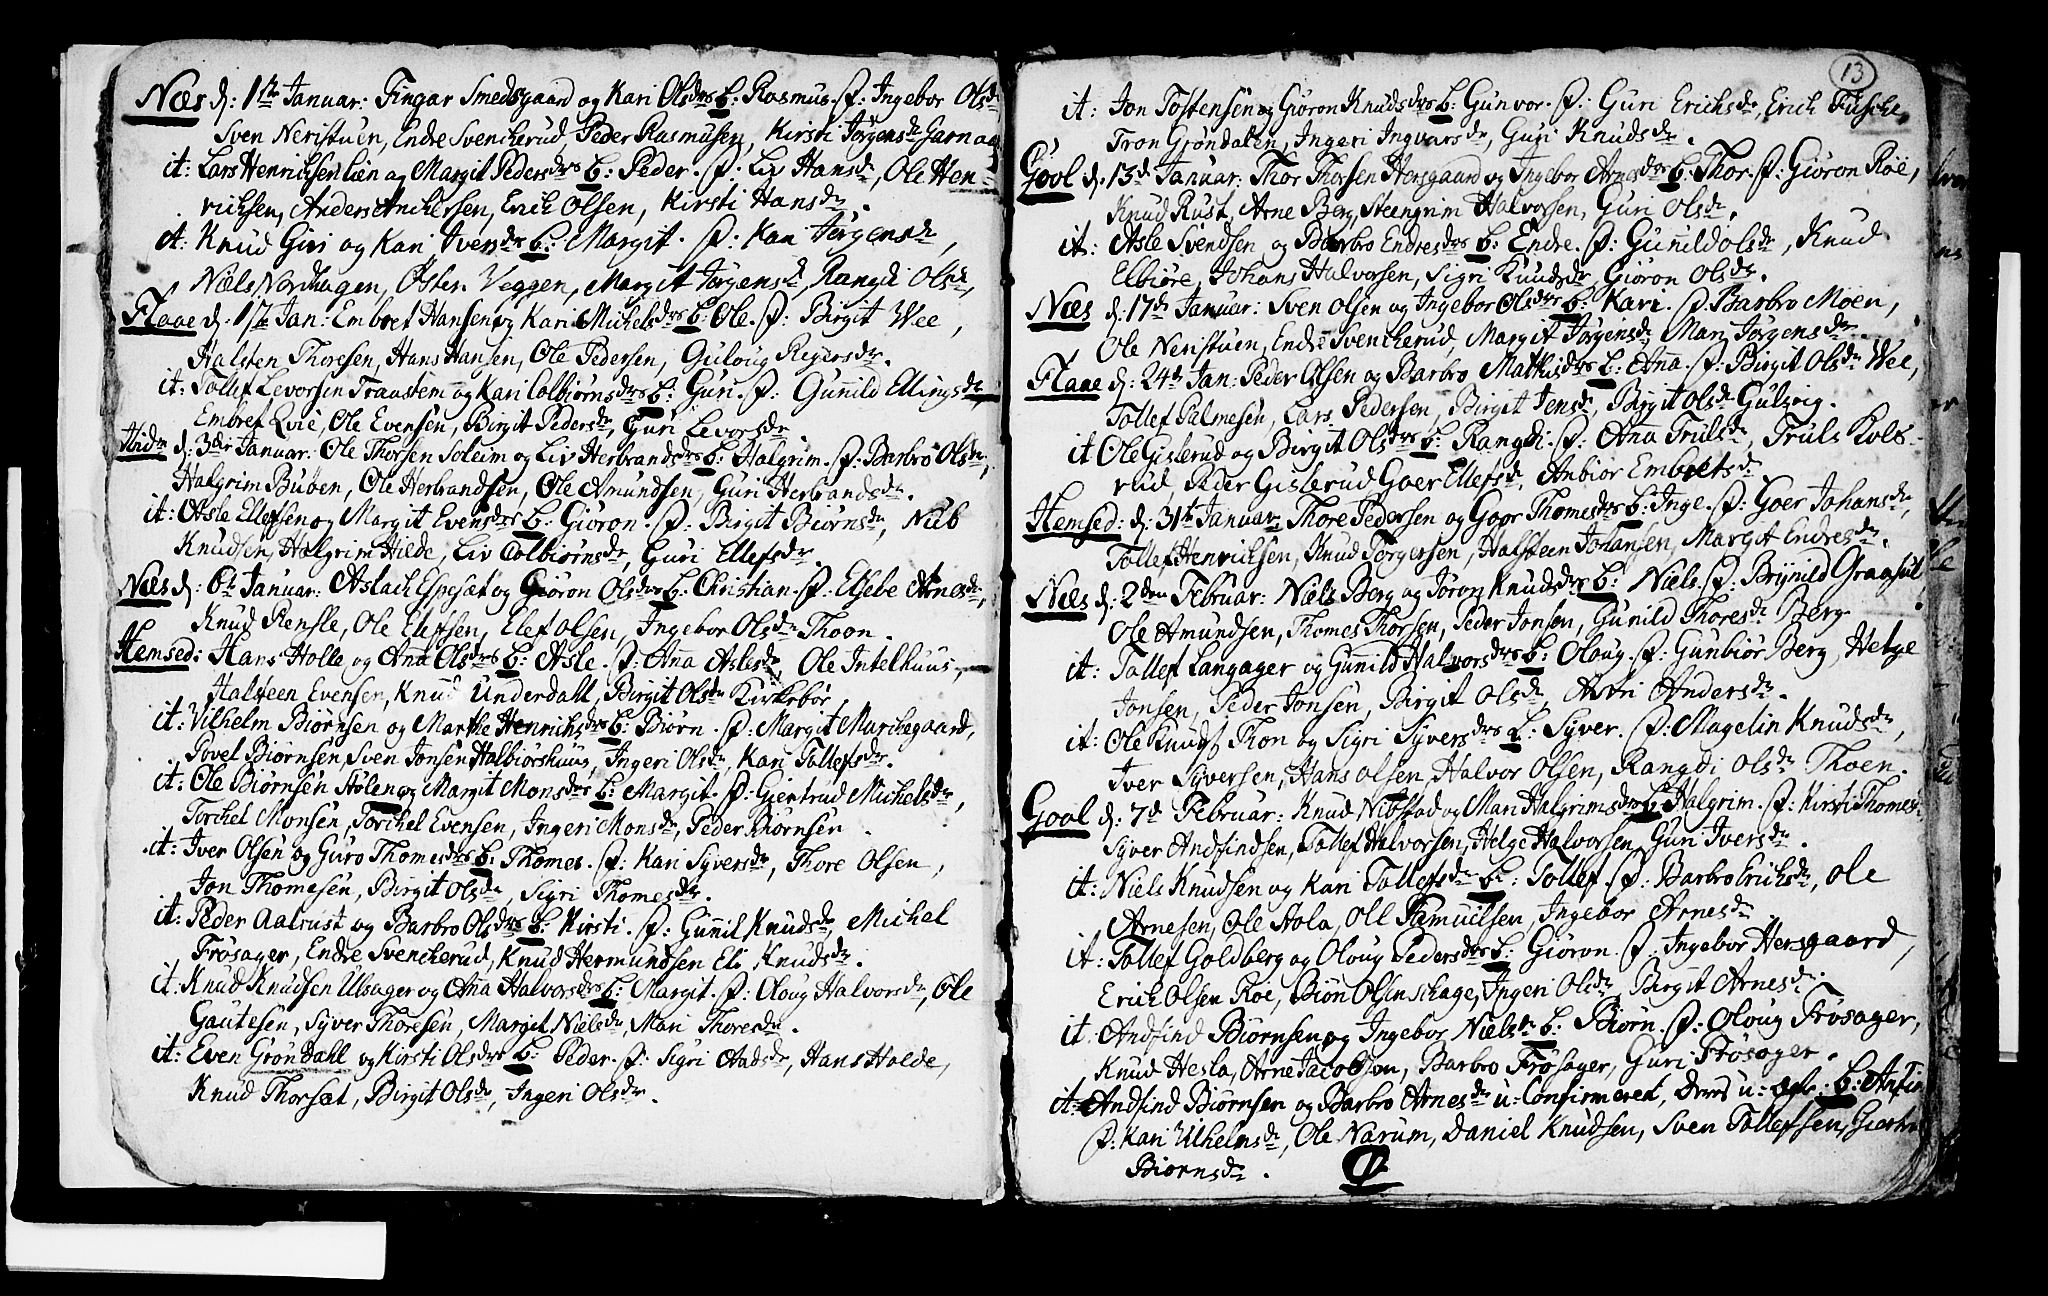 Næs d: 1te Januar: Fingar Smedsgaard og Kari Olsdrs b: Rasmus. f: Ingebor Olsdr
Sven Neristuen, Endre Svencherud, Peder Rasmusen, Kirsti Jørgensdr Garnaas
it: Lars Henrichsen Lien og Margit Pedersdrs b: Peder. f: Liv Hansdr, Ole Hen-
richsen, Anders Anchersen, Erich Olsen, Kirsti Hansdr.
it: Knud Giri og Kari Iversdrs b: Margit. f: Kari Jørgensdr,
Niels Nordhagen, Østen Veggen, Margit Jørgensdr, Rangdi Olsdr,
Flaae d: Jan: Embret Hansen og Kari Michelsdrs b: Ole. f: Birgit Wee,
Halsten Thoresen, Hans Hansen, Ole Pedersen, Guloug Reyersdr.
it: Tollef Levorsen Traustem og Kari Colbiørnsdrs b: Guri. f: Gunild Ellingsdr
Embret Qvie, Ole Evensen, Birgit Pedersdr, Guri Levorsdr
d: 3die Januar: Ole Thorsen Soleim og Liv Herbrandsdrs b: Halgrim. f: Barbro Olsdr,
Halgrim Buben, Ole Herbrandsen, Ole Amundsen, Guri Herbrandsdr.
it: Asle Ellefsen og Margit Evensdrs b: Giøron. f: Birgit Biørnsdr, Nub
Knudsen, Halgrim Hilde, Liv Colbiørnsdr, Guri Ellefsdr.
Næs d: 6te Januar: Aslach Espesæt og Giøron Olsdrs b: Christian. f: Elsebe Arnesdr,
Knud Rensle, Ole Elefsen, Elef Olsen, Ingebor Olsdr Thoen.
Hemsed: Hans Holle og Ana Olsdrs b: Asle. f: Ana Aslesdr Ole Intelhuus,
Halsteen Evensen, Knud Underdall, Birgit Olsdr Kirkebøe,
it: Vilhelm Biørnsen og Marthe Henrichsdrs b: Biørn. f: Margit Marchegaard,
Povel Biørnsen, Sven Jonsen Halbiørshuus, Ingeri Olsdr, Kari Tollefsdr.
it: Ole Biørnsen Stølen og Margit Monsdrs b: Margit. f: Giertrud Michelsdr,
Torchel Monsen, Torchel Evensen, Ingeri Monsdr, Peder Biørnsen
it: Iver Olsen og Guro Thomesdrs b: Thomes. f: Kari Syversdr, Thore Olsen,
Jon Thomesen, Birgit Olsdr, Sigri Thomesdr.
it: Peder Aalrust og Barbro Olsdrs b: Kirsti. f: Gunil Knudsdr, Michel
Frøsager, Endre Svencherud, Knud Hermundsen Eli Knudsdr.
it: Knud Knudsen Ulsager og Ana Halvorsdrs b: Margit. f: Oloug Halvorsdr, Ole
Gautesen, Syver Thoresen, Margit Nielsdr, Mari Thoresdr.
it: Even Grøndahl og Kirsti Olsdrs b: Peder. f: Sigri Andsdr, Hans Holde,
Knud Thorsæt, Birgit Olsdr, Ingeri Olsdr.
13
it: Jon Tostensen og Giøron Knudsdrs b: Gunvor. f: Guri Erichsdr, Erich Tusche,
Tron Grøndalen, Ingeri Ingvarsdr, Guri Knudsdr.
Gool d: 13d Januar: Thor Thorsen Hersgaard og Ingebor Arnesdrs b: Thor. f: Giøron Røe,
Knud Rust, Arne Berg, Steengrim Halvorsen, Guri Olsdr.
it: Asle Svendsen og Barbro Endresdrs b: Endre. f: Gunild Olsdr, Knud
Elbiøre, Johans Halvorsen, Sigri Knudsdr Giøron Olsdr.
Næs d: 17de Januar: Sven Olsen og Ingebor Olsdrs b: Kari. f: Barbro Moen,
Ole Neristuen, Endre Svencherud, Margit Jørgensdr Mari Jørgensdr.
Flaae d: 24de Jan: Peder Olsen og Barbro Mathisdrs b: Ana. f: Birgit Olsdr Wee,
Tollef Palmesen, Lars Pedersen, Birgit Jensdr, Birgit Olsdr Gulsvig.
it Ole Gislerud og Birgit Olsdrs b: Rangdi. f: Ana Trulsdr, Truls Kols-
rud, Peder Gislerud Goer Ellefsdr, Anbiør Embretsdr
Hemsed: d: 31te Januar: Thore Pedersen og Goer Thomesdrs b: Inge. f: Goer Johansdr,
Tollef Henrichsen, Knud Torgersen, Halsteen Johansen, Margit Endresdr.
Næs d: 2den Februar: Niels Berg og Jøron Knudsdrs b: Niels. f: Brynild Graasul,
Ole Amundsen, Thomes Thorsen, Peder Jonsen, Gunild Thoresdr Berg
it: Tollef Langager og Gunild Halvorsdrs b: Oloug. f: Gunbiør Berg, Helge
Jonsen, Peder Jonsen, Birgit Olsdr, Andersdr.
it: Ole Knuds Thon og Sigri Syversdrs b: Syver. f: Magelin Knudsdr,
Iver Syversen, Hans Olsen, Halvor Olsen, Rangdi Olsdr Thoen.
Gool d: 7d Februar: Knud Nibstad og Mari Halgrimsdrs b: Halgrim. f: Kirsti Thomesdr,
Syver Andfindsen, Tollef Halvorsen, Helge Halvorsen, Guri Iversdr.
it: Niels Knudsen og Kari Tollefsdr b: Tollef. f: Barbro Erichsdr, Ole
Arnesen, Ole Stola, Oll Samuelsen, Ingebor Arnesdr
it: Tollef Goldberg og Oloug Pedersdrs b: Giøron. f: Ingebor Hersgaard,
Erich Olsen Røe, Biøn Olsen Schage, Ingeri Olsdr, Birgit Arnesdr.
it: Andfind Biørnsen og Ingebor Nielsdr b: Biørn. f: Oloug Frøsager,
Knud Hesla, Arne Jacobsen, Barbro Frøsager, Guri Frøsager.
it: Andfind Biørnsen og Barbro Arnesdr u: Confirmeret, u: b: Anfin
f: Kari Vilhelmsdr, Ole Narum, Daniel Knudsen, Sven Tollefsen, Giertru
Biørnsdr.